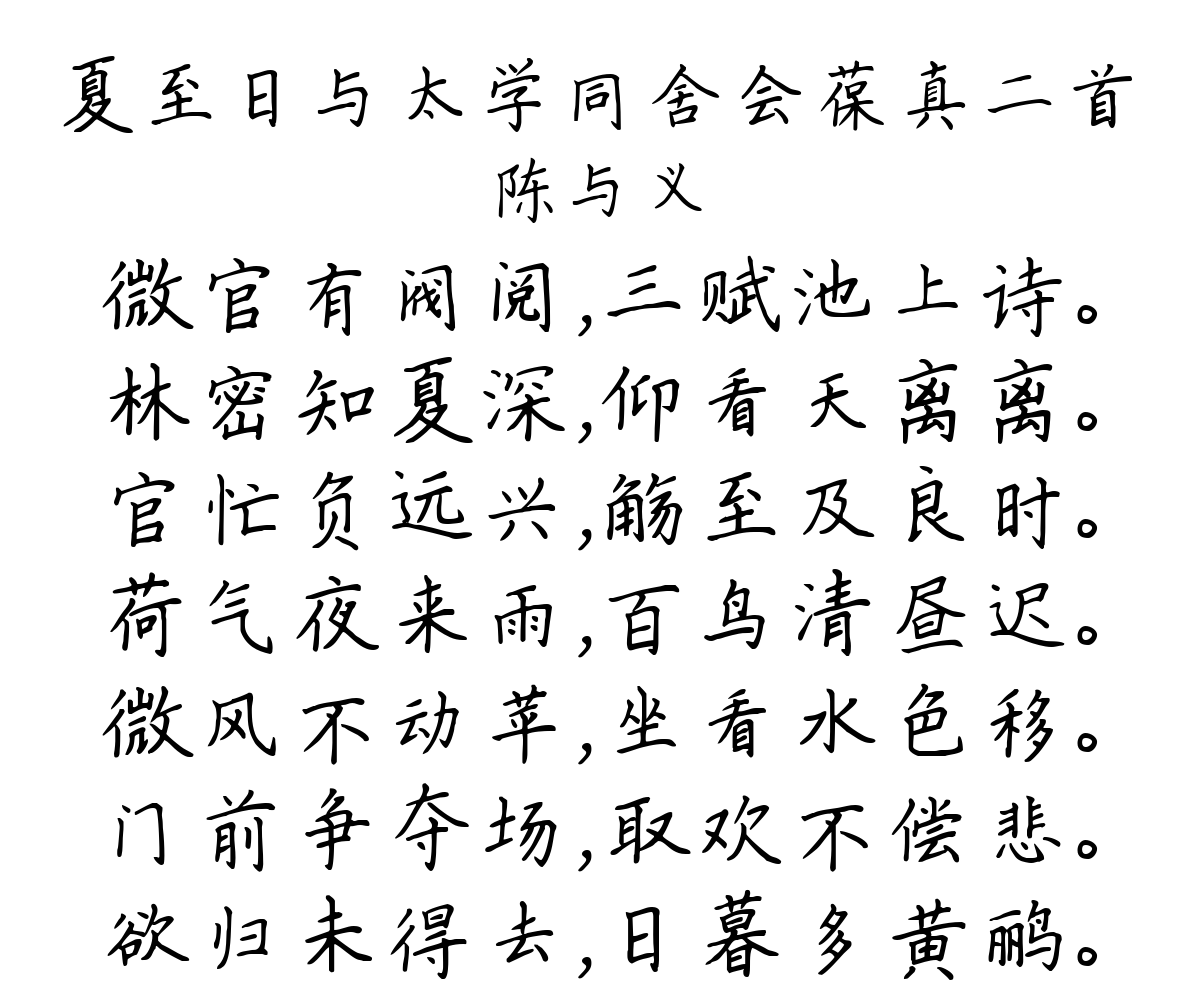 夏至日与太学同舍会葆真二首
陈与义
微官有阀阅,三赋池上诗。
林密知夏深,仰看天离离。
官忙负远兴,觞至及良时。
荷气夜来雨,百鸟清昼迟。
微风不动苹,坐看水色移。
门前争夺场,取欢不偿悲。
欲归未得去,日暮多黄鹂。